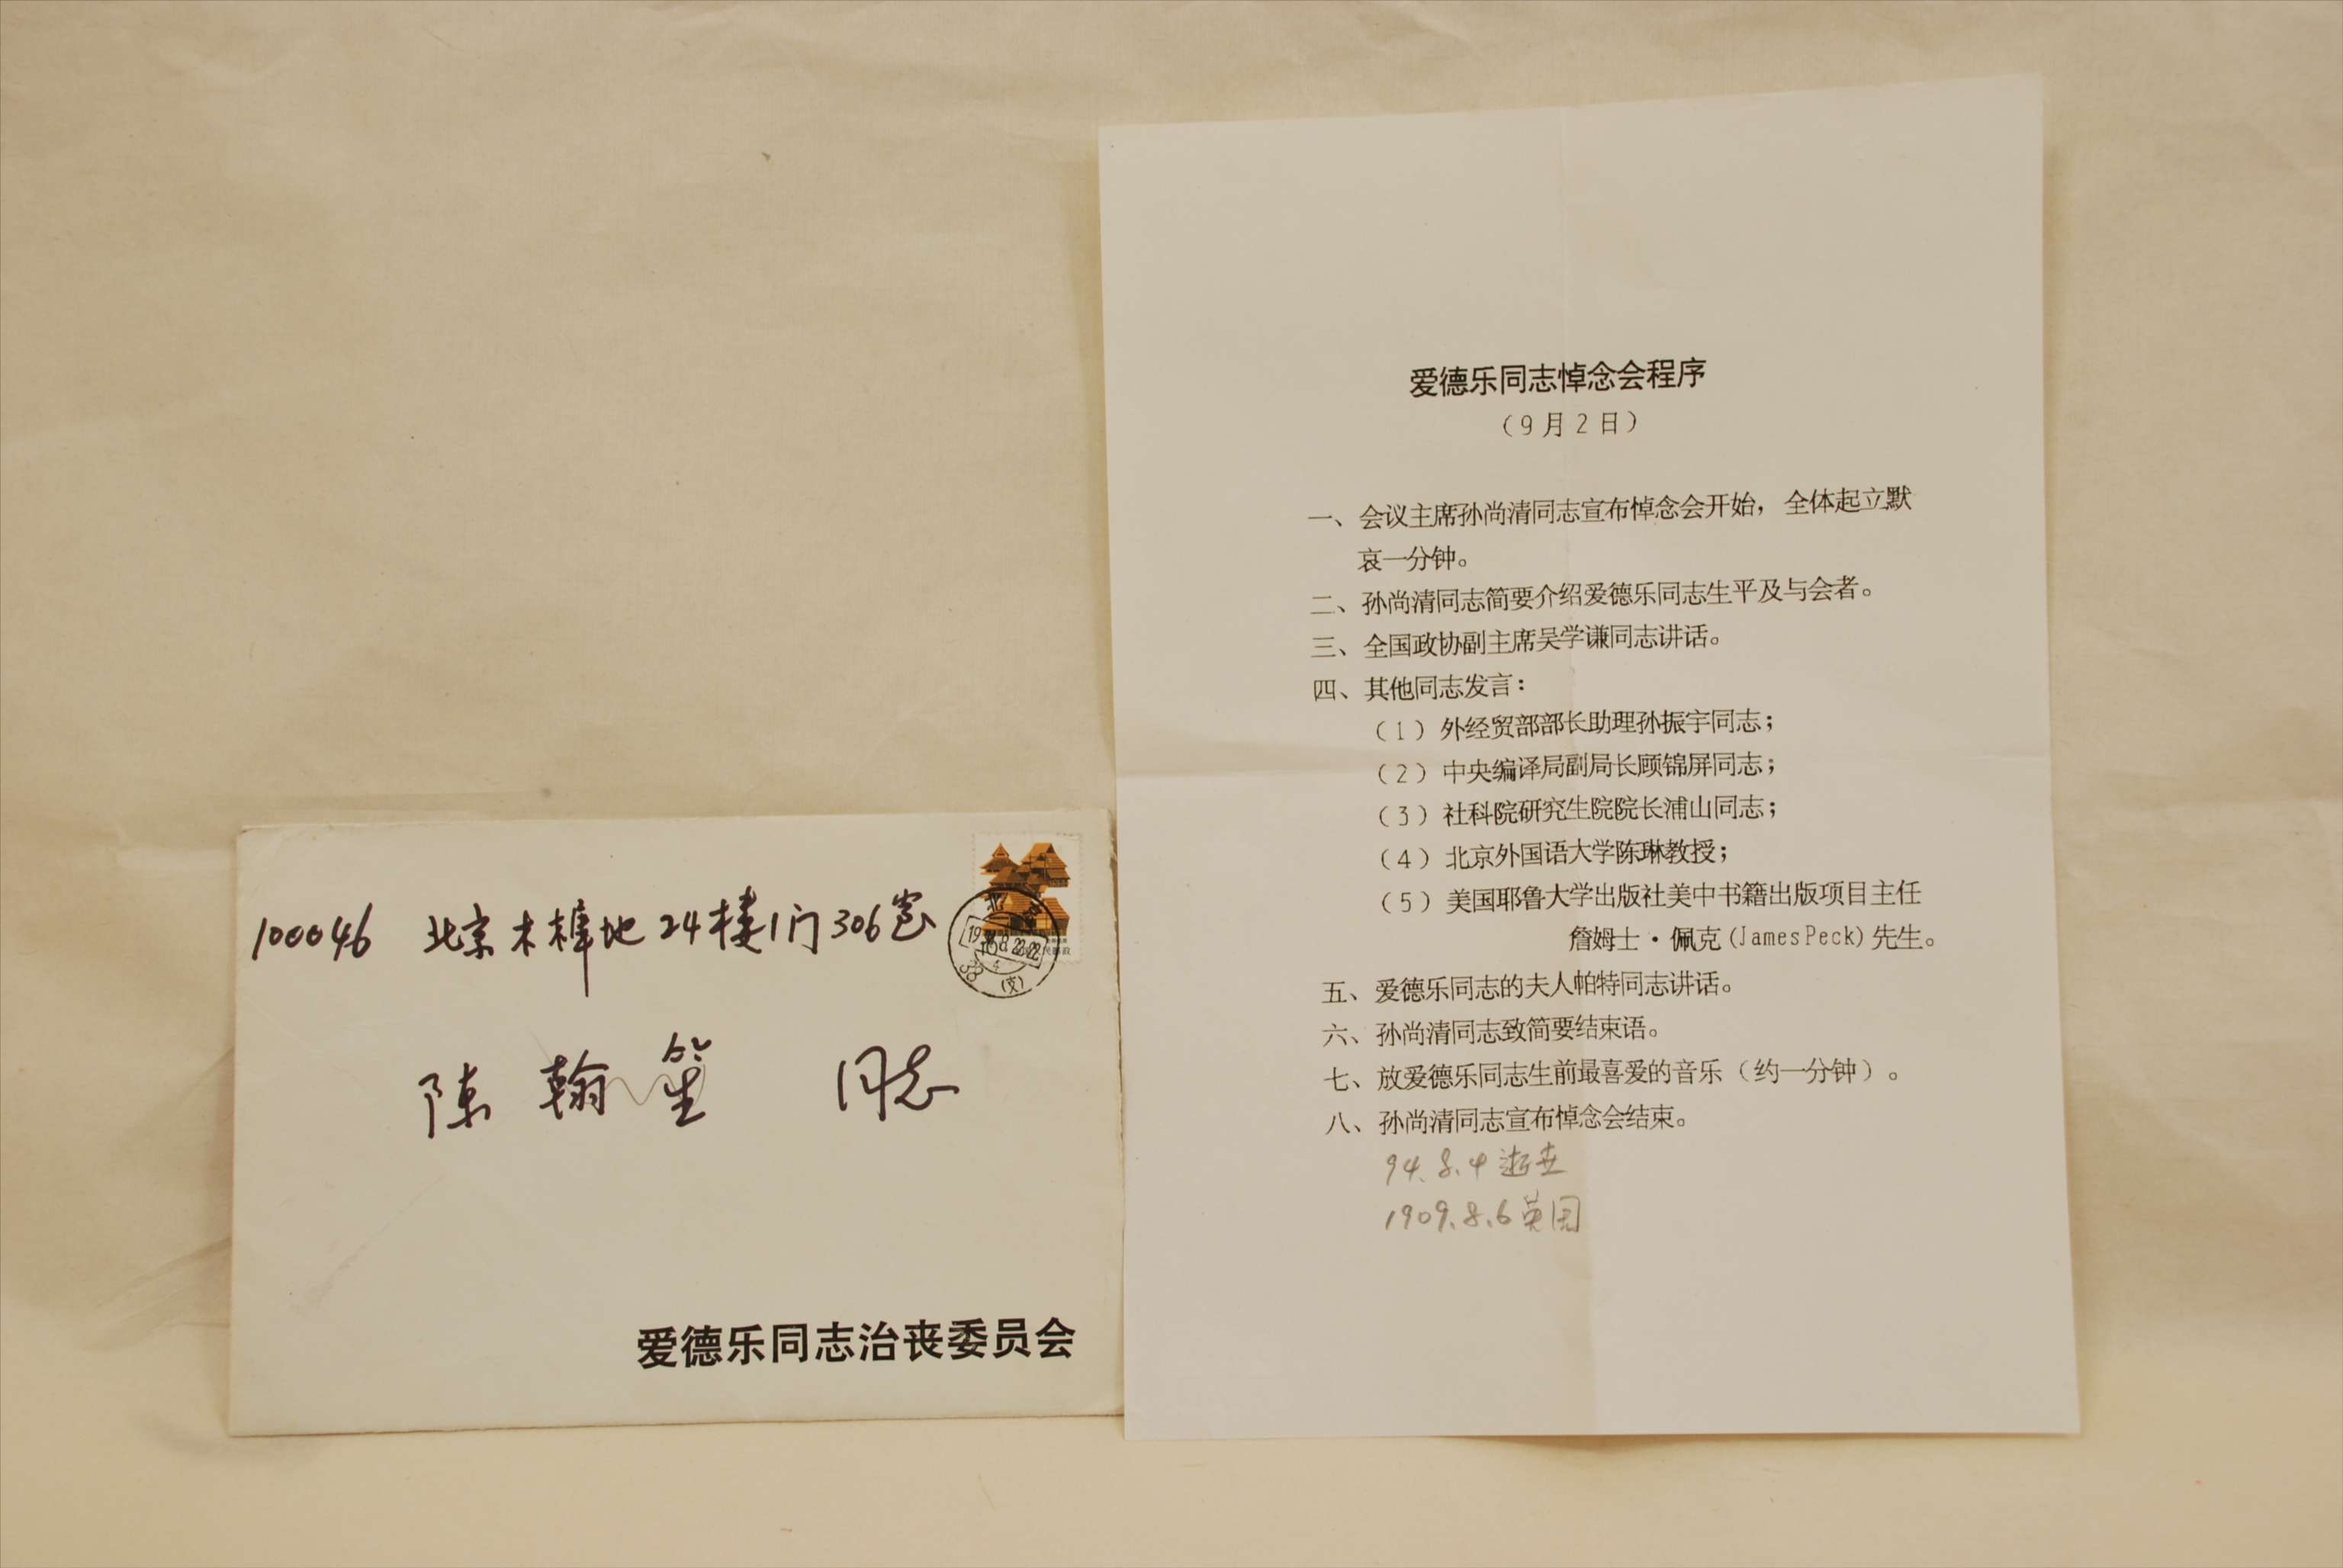 100046 北京木樨地24楼1门306室
陈翰笙 同志
爱德乐同志治丧委员会
爱德乐同志悼念会程序
（9月2日）
一、会议主席孙尚清同志宣布悼念会开始，全体起立默
哀一分钟。
二、孙尚清同志简要介绍爱德乐同志生平及与会者。
三、全国政协副主席吴学谦同志讲话。
四、其他同志发言：
（1）外经贸部部长助理孙振宇同志；
（2）中央编译局副局长顾锦屏同志；
（3）社科院研究生院院长浦山同志；
（4）北京外国语大学陈琳教授；
（5）美国耶鲁大学出版社美中书籍出版项目主任
詹姆士·佩克(James Peck)先生。
五、爱德乐同志的夫人帕特同志讲话。
六、孙尚清同志致简要结束语。
七、放爱德乐同志生前最喜爱的音乐（约一分钟）。
八、孙尚清同志宣布悼念会结束。
94.8.4逝世
1909.8.6英国